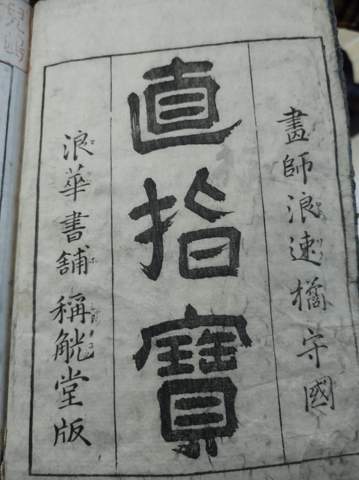 畫師浪速橘守國
直指寶
浪華書舗 稱觥堂版